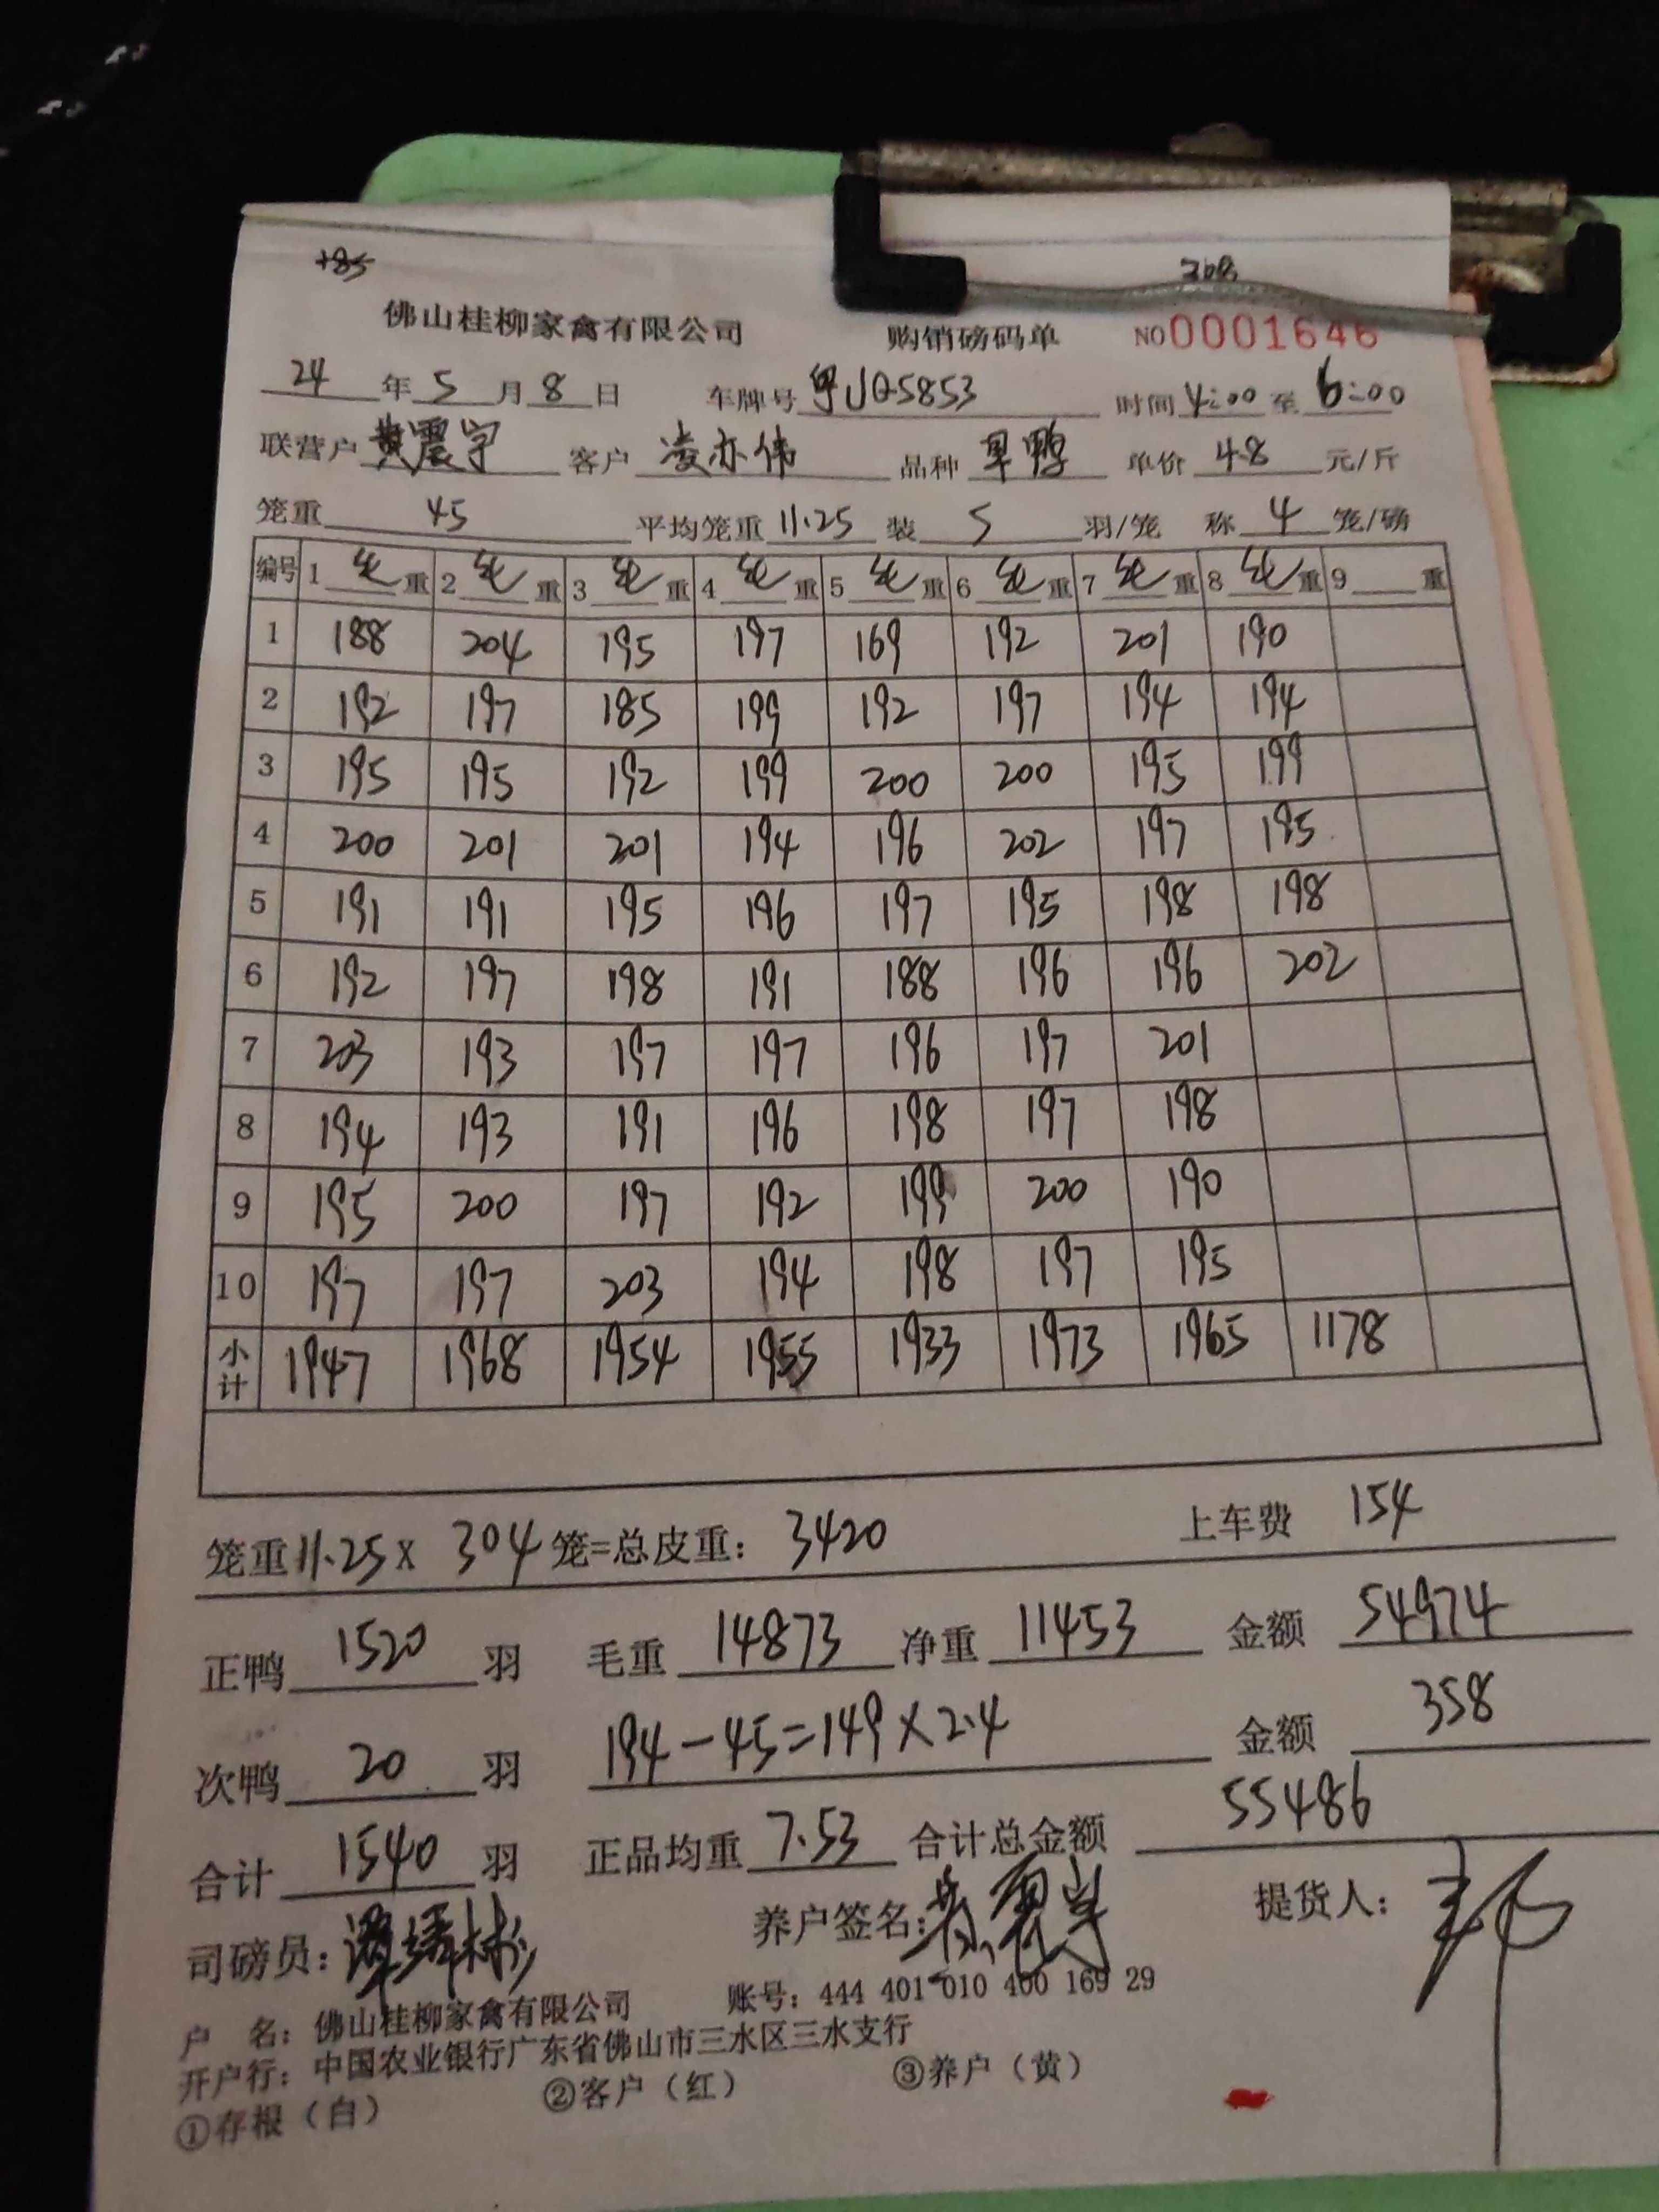 +85 368
佛山桂柳家禽有限公司 购销磅码单 NO 0001646
24 年 5 月 8 日 车牌号 粤JQ5853 时间 4:00 至 6:00
联营户 黄震宇 客户 凌亦伟 品种 草鸭 单价 4.8 元/斤
笼重 45 平均笼重 11.25 装 5 羽/笼 称 4 笼/磅
编号 1 毛 重 2 毛 重 3 毛 重 4 毛 重 5 毛 重 6 毛 重 7 毛 重 8 毛 重 9 重
1 188 204 195 197 169 192 201 190
2 192 197 185 199 192 197 194 194
3 195 195 192 199 200 200 195 199
4 200 201 201 194 196 202 197 195
5 191 191 195 196 197 195 198 198
6 192 197 198 191 188 196 196 202
7 203 193 197 197 196 197 201
8 194 193 191 196 198 197 198
9 195 200 197 192 199 200 190
10 197 197 203 194 198 197 195
小计 1947 1968 1954 1955 1933 1973 1965 1178
笼重 11.25 X 304 笼=总皮重: 3420 上车费 154
正鸭 1520 羽 毛重 14873 净重 11453 金额 54974
次鸭 20 羽 194-45=149×2.4 金额 358
合计 1540 羽 正品均重 7.53 合计总金额 55486
司磅员: 养户签名: 黄震宇 提货人:
户 名: 佛山桂柳家禽有限公司 账号: 444 401 010 400 169 29
开户行: 中国农业银行广东省佛山市三水区三水支行
①存根（白） ②客户（红） ③养户（黄）